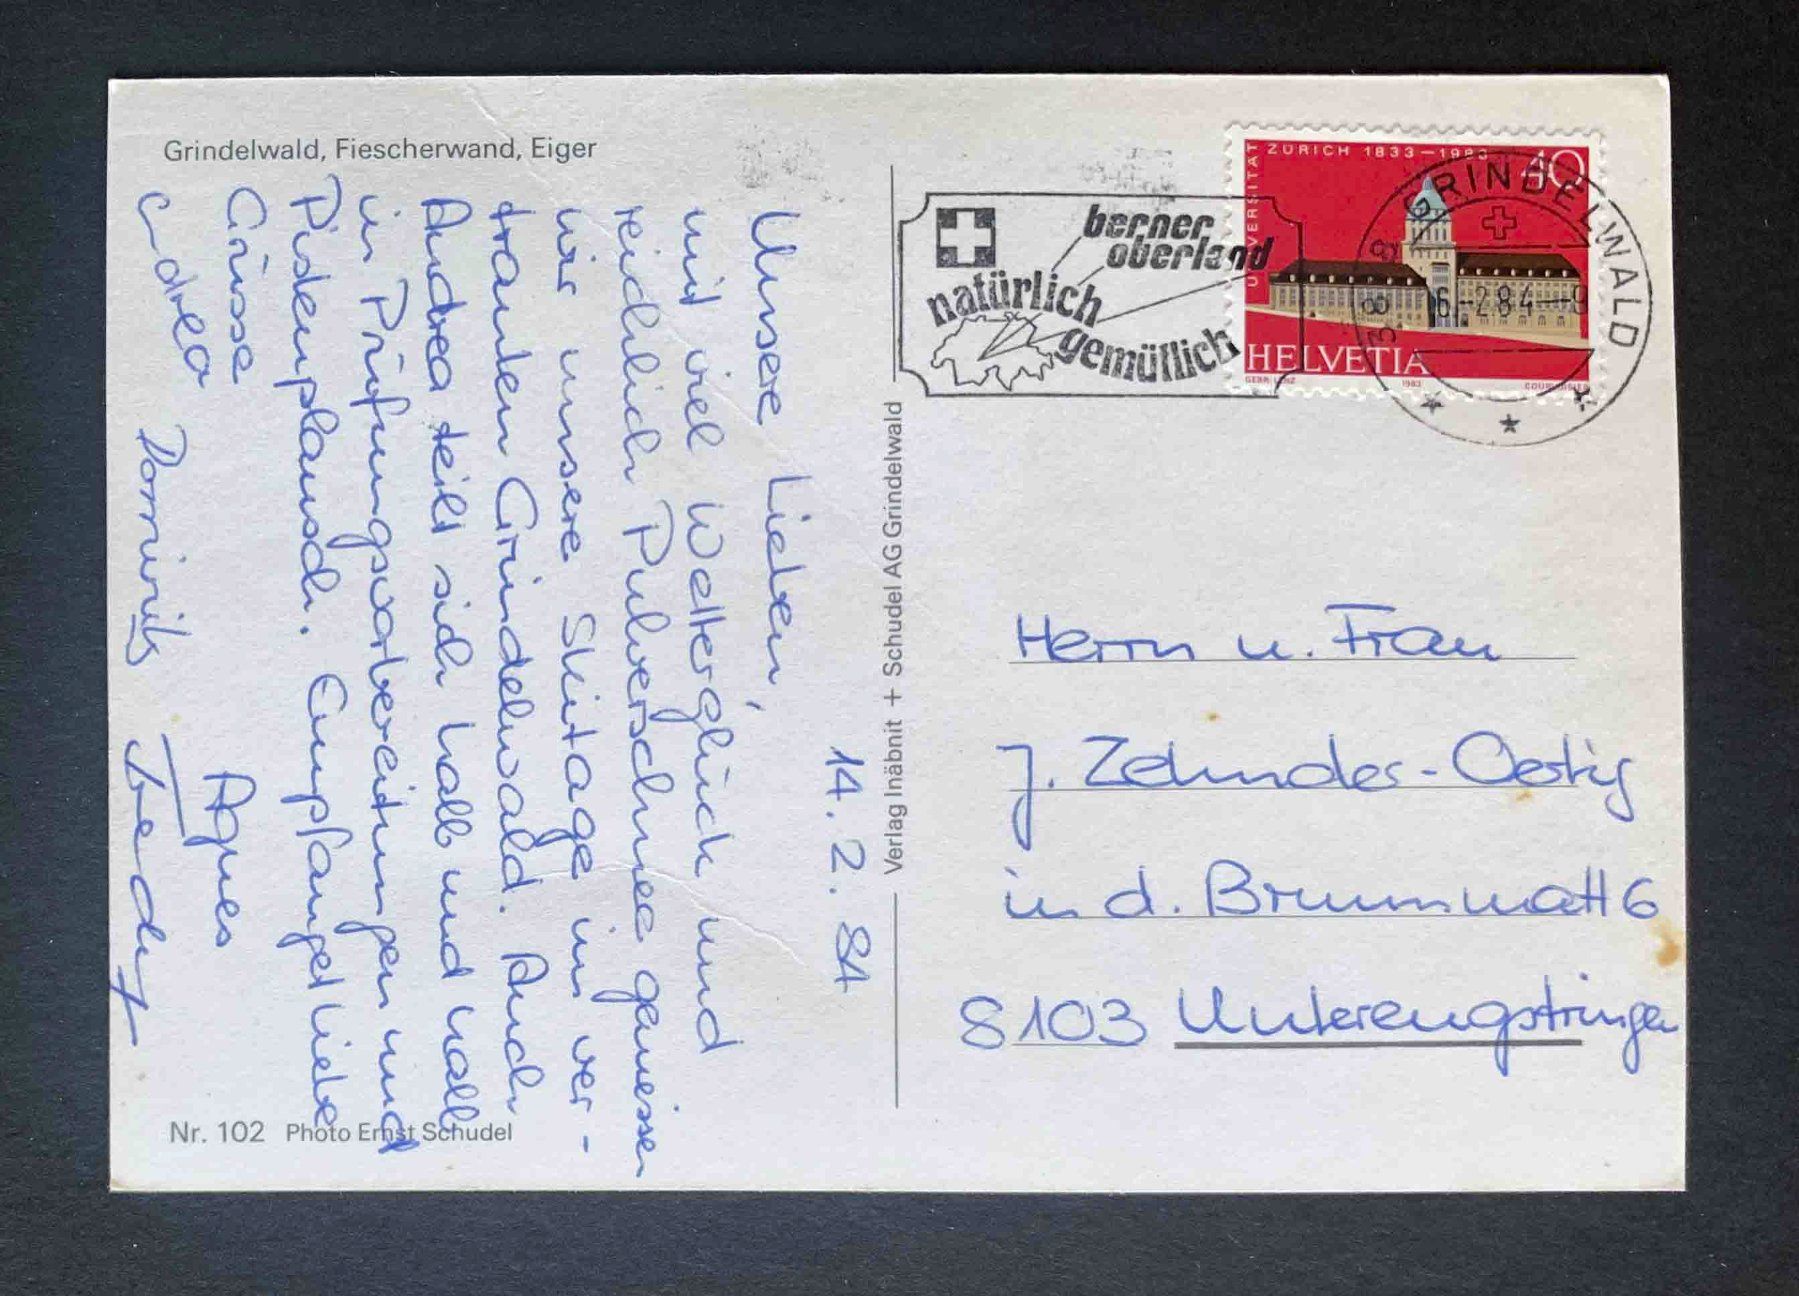 Grindelwald, Fiescherwand, Eiger
14. 2. 84
Unsere Lieben,
mit viel Wetterglück und
reichlich Pulverschnee geniessen
wir unsere Skitage im ver-
trauten Grindelwald. Auch
Andrea teilt sich halb und halb
in Prüfungsvorbereitungen und
Pistenplausch. Empfanget liebe
Grüsse Agnes
Andrea Dominik Fredy
Nr. 102 Photo Ernst Schudel
Verlag Inäbnit + Schudel AG Grindelwald
berner
oberland
natürlich
gemütlich
UNIVERSITÄT ZÜRICH 1833–1983 40
HELVETIA
1983
3818 GRINDELWALD
-2 84 -
Herrn u. Frau
J. Zehnder-Oestig
in d. Brunnmatt 6
8103 Unterengstringen